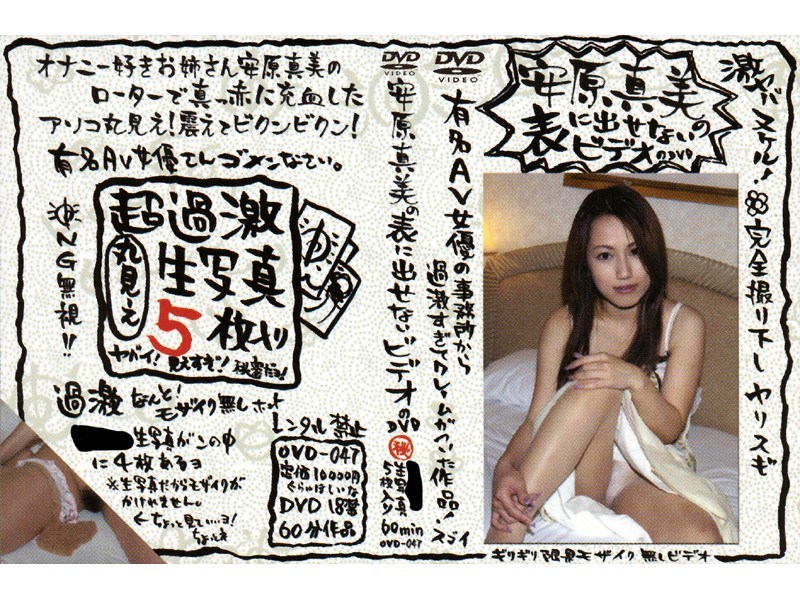 オナニー好きお姉さん安原真美の
ローターで真っ赤に充血した
アソコ丸見え!震えてビクンビクン!
有名AV女優さんゴメンなさい。
NG無視!!
超過激
丸見え
生写真
5枚入り
ヤバイ!見えすぎ!秘密だョ!
過激なんと!
モザイク無し
生写真がこの中
に4枚あるヨ
※生写真だからモザイクが
かけれません。
←ちょっと見てい…ヨ!
ちょっとネ
レンタル禁止
OVD-047
定価10000円
ぐらいはしいな
DVD 18禁
60分作品
DVD
VIDEO
安原真美の表に出せないビデオのDVD
㊙
生写真
5枚入り
60min
OVD-047
DVD
VIDEO
有名AV女優の事務所から
過激すぎてクレームがついた作品!スゴイ
安原真美の
表に出せない
ビデオのDVD
激ヤバスケル!
完全撮り下しヤリスギ
ギリギリ限界モザイク無しビデオ